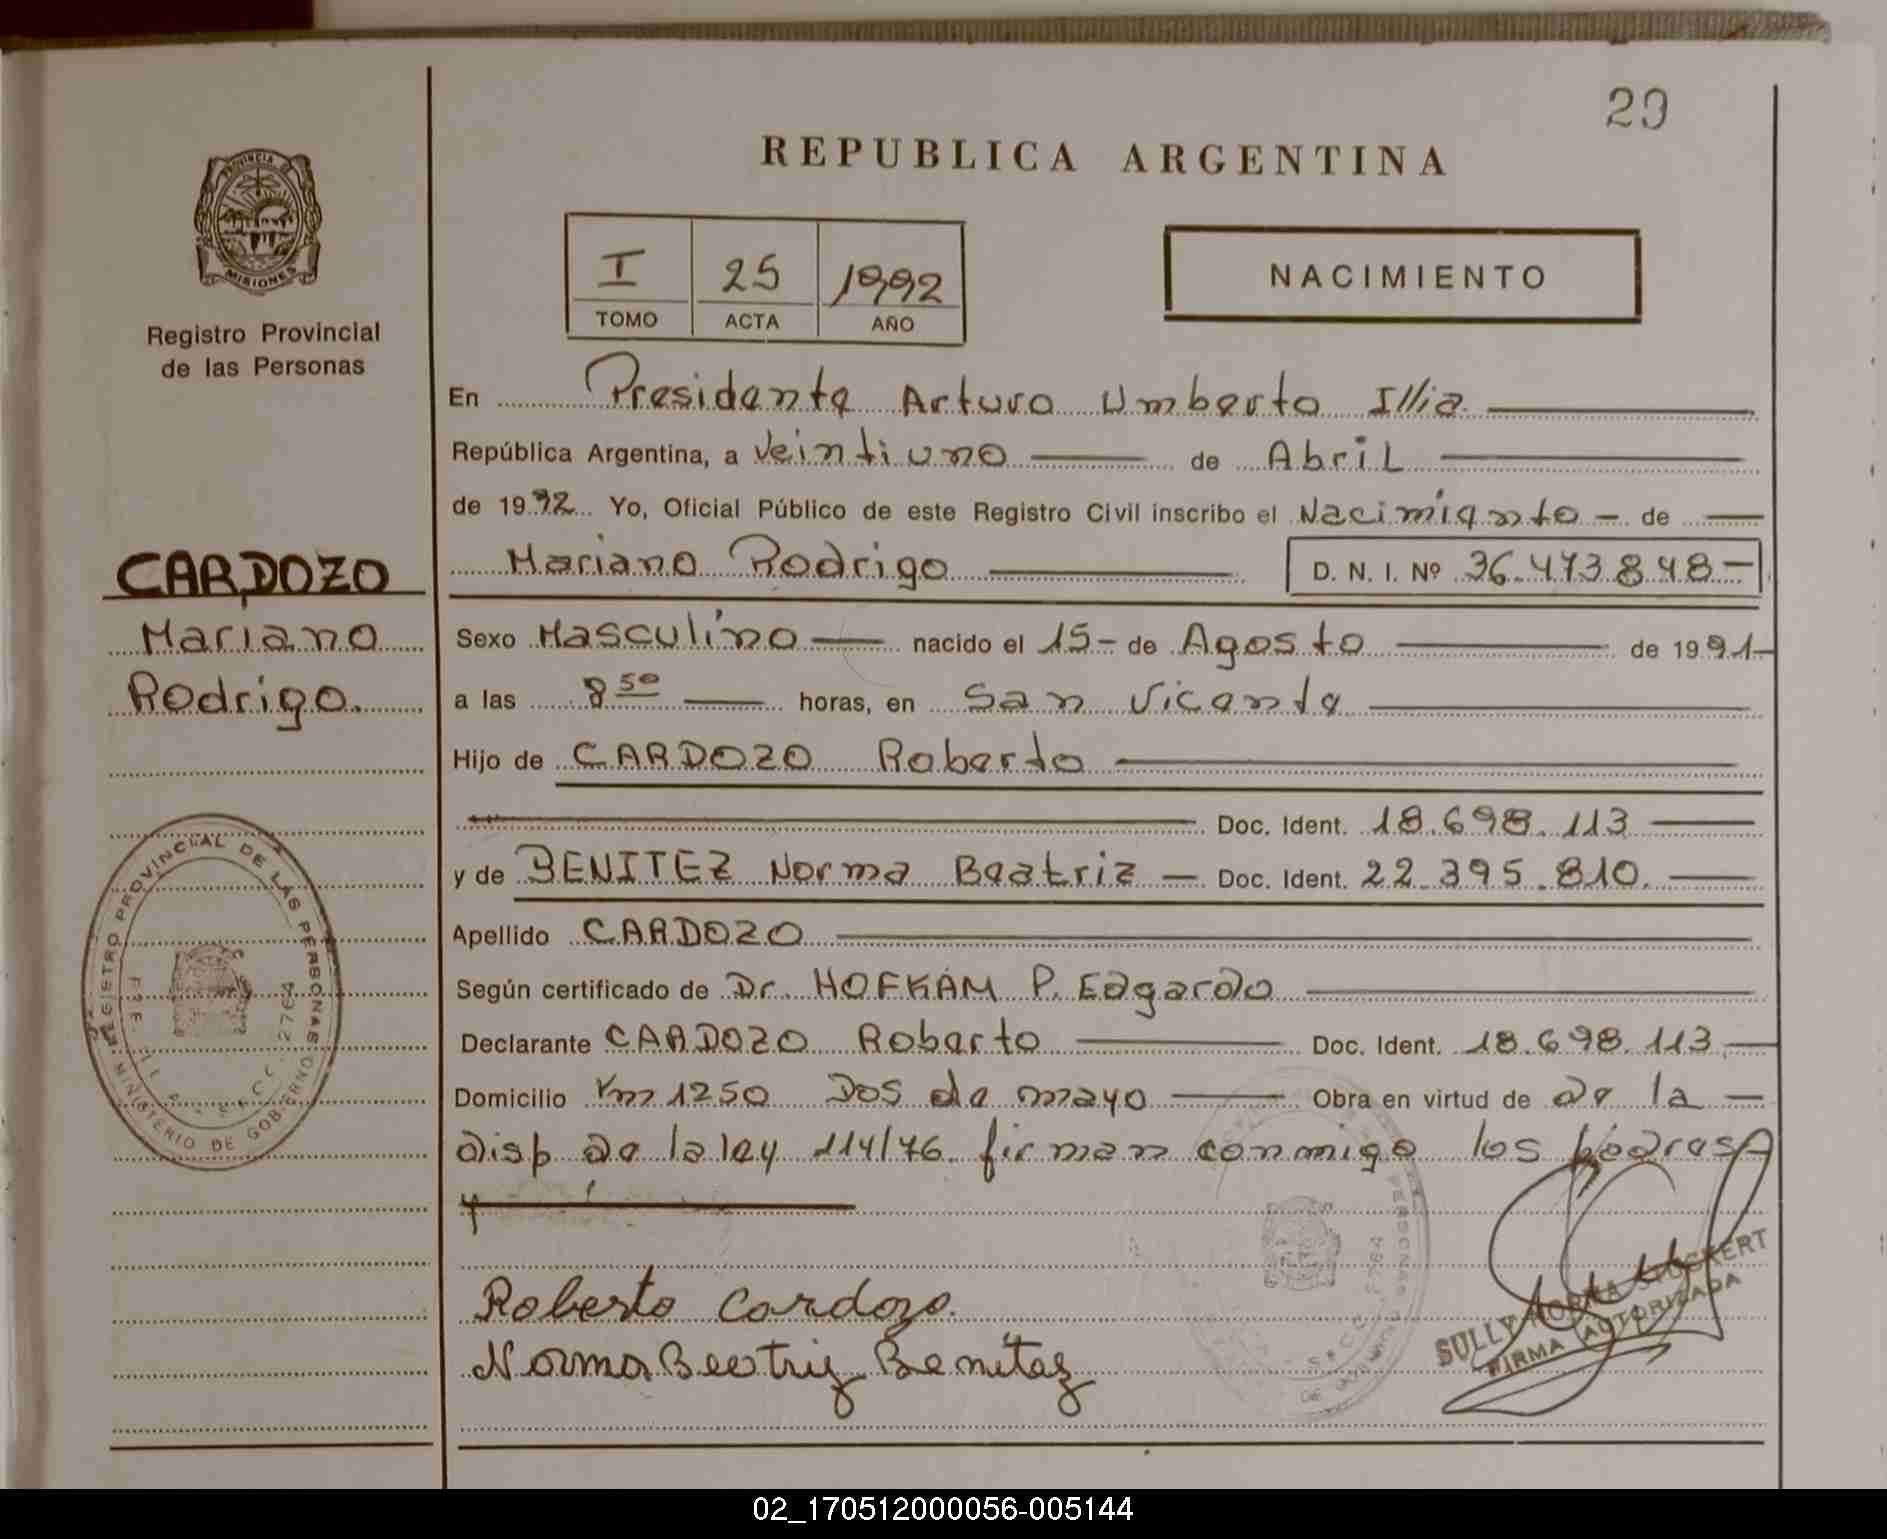 29
REPUBLICA ARGENTINA
PROVINCIA DE
MISIONES
Registro Provincial
de las Personas
I 25 1992
TOMO ACTA AÑO
NACIMIENTO
En Presidente Arturo Umberto Illia
República Argentina, a Veintiuno de Abril
de 1992 Yo, Oficial Público de este Registro Civil inscribo el Nacimiento de
Mariano Rodrigo D. N. I. Nº 36.473.848
CARDOZO
Mariano
Rodrigo.
Sexo Masculino nacido el 15 de Agosto de 1991
a las 8 50 horas, en San Vicente
Hijo de CARDOZO Roberto
Doc. Ident. 18.698.113
y de BENITEZ Norma Beatriz Doc. Ident. 22.395.810.
Apellido CARDOZO
Según certificado de Dr. HOFKAM P. Edgardo
Declarante CARDOZO Roberto Doc. Ident. 18.698.113
Domicilio Km 1250 Dos de mayo Obra en virtud de de la
disp de la ley 114/76. firman conmigo los padres
Roberto Cardozo.
Norma Beatriz Benitez
REGISTRO PROVINCIAL DE LAS PERSONAS
MINISTERIO DE GOBIERNO
2764
SULLY NORMA STOCKERT
FIRMA AUTORIZADA
02_170512000056-005144